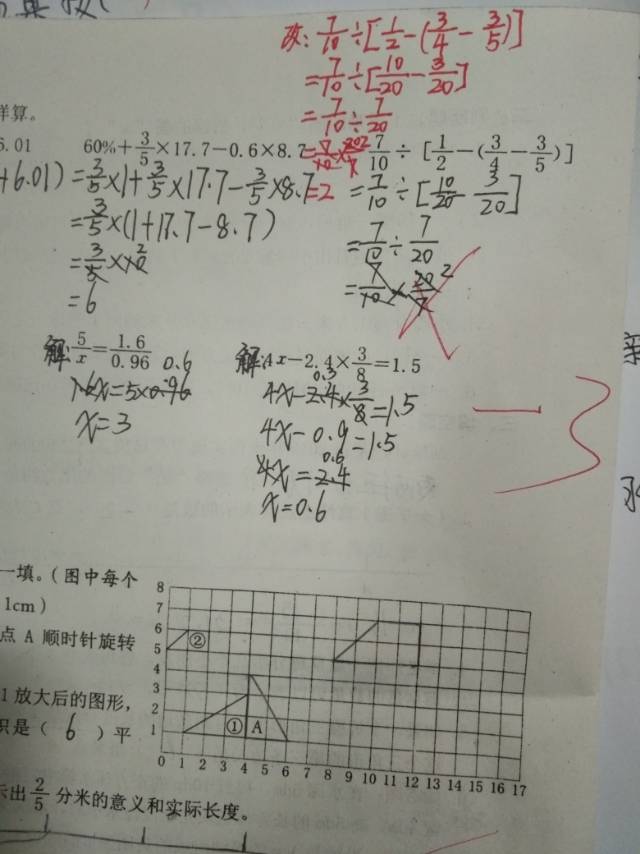 改: 7/10÷[1/2-(3/4-3/5)]
=7/10÷[10/20-3/20]
=7/10÷7/20
=7/10×20/7
=2
样算。
6.01
60%+3/5×17.7-0.6×8.7
7/10÷[1/2-(3/4-3/5)]
+6.01)
=3/5×1+3/5×17.7-3/5×8.7
=7/10÷[10/20-3/20]
=3/5×(1+17.7-8.7)
=7/10÷7/20
=3/5×10 2
=7/10×20/7 2
=6
解: 5/x=1.6/0.96
解: 4x-2.4×3/8=1.5
0.6
1.6x=5×0.96
0.3
4x-2.4×3/8=1.5
x=3
4x-0.9=1.5
0.6
4x=2.4
x=0.6
-3
一填。(图中每个
1cm)
点 A 顺时针旋转
1 放大后的图形,
积是( 6 )平
示出 2/5 分米的意义和实际长度。
8
7
6
5
4
3
2
1
②
① A
0 1 2 3 4 5 6 7 8 9 10 11 12 13 14 15 16 17